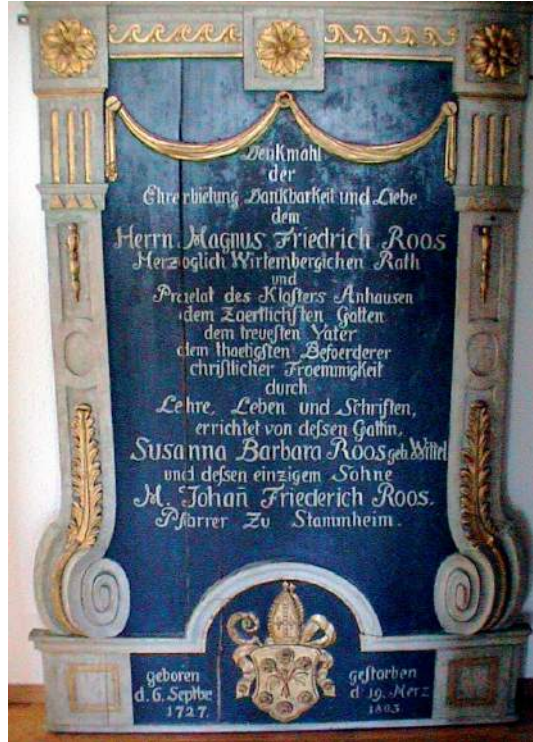 Denkmahl
der
Ehrerbietung Dankbarkeit und Liebe
dem
Herrn Magnus Friedrich Roos
Herzoglich Wirtembergichen Rath
und
Praelat des Klosters Anhausen
dem Zaertlichsten Gatten
dem treuesten Vater
dem thaetigsten Befoerderer
christlicher Froemmigkeit
durch
Lehre, Leben und Schriften,
errichtet von dessen Gattin,
Susanna Barbara Roos geb. Wittel
und dessen einzigem Sohne
M. Johan̄ Friederich Roos.
Pfarrer Zu Stammheim.
geboren
d. 6. Septbe
1727.
gestorben
d 19. Merz
1803